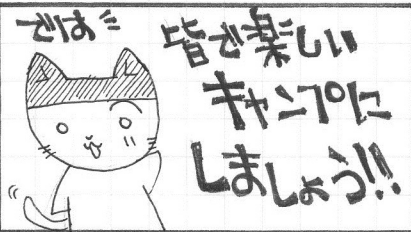 では
皆で楽しい
キャンプに
しましょう!!